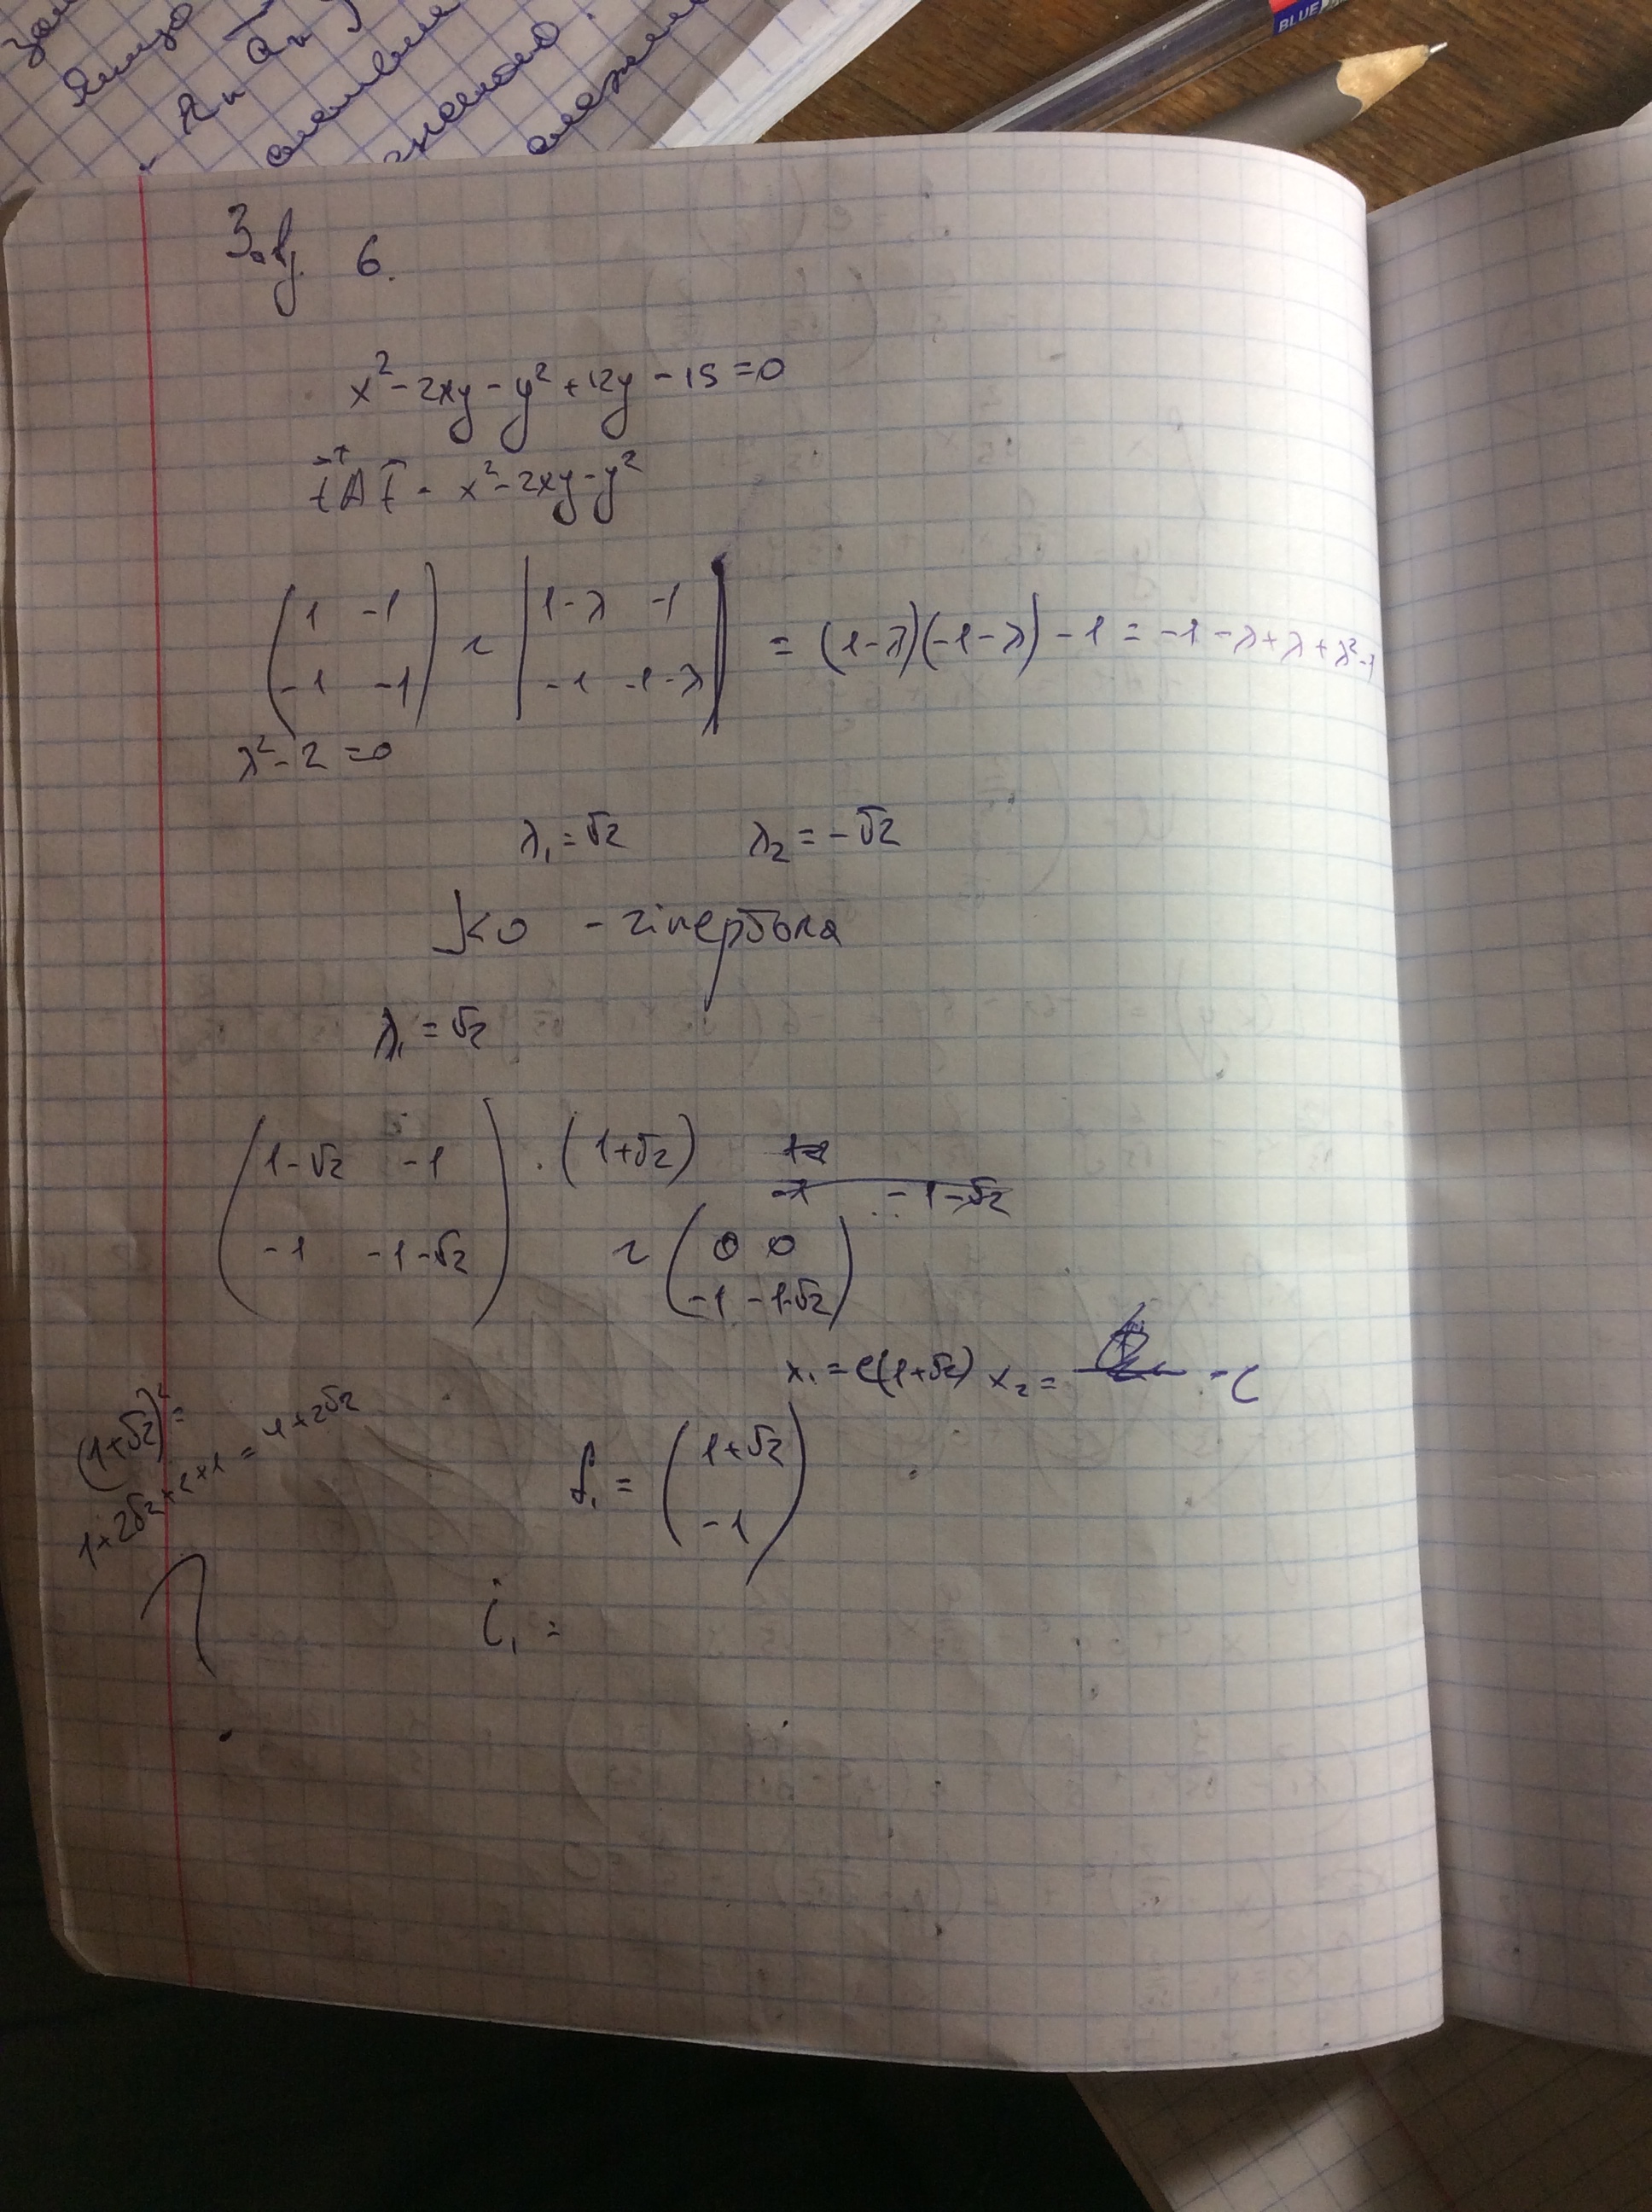 BLUE
Зад. 6.
x² - 2xy - y² + 12y - 15 = 0
x² - 2xy - y²
( 1 -1 ) ~ | 1-λ -1 | = (1-λ)(-1-λ) - 1 = -1 - λ + λ + λ² - 1
( -1 -1 ) | -1 -1-λ |
λ² - 2 = 0
λ₁ = √2 λ₂ = -√2
J<0 - гіпербола
λ₁ = √2
( 1-√2 -1 ) · (1+√2)
-1 -1-√2
( -1 -1-√2 ) ~ ( 0 0 )
( -1 -1-√2 )
x₁ = c(1+√2) x₂ = -c
(1+√2)² =
1+2√2+2 = 
f₁ = ( 1+√2 )
( -1 )
i₁ =